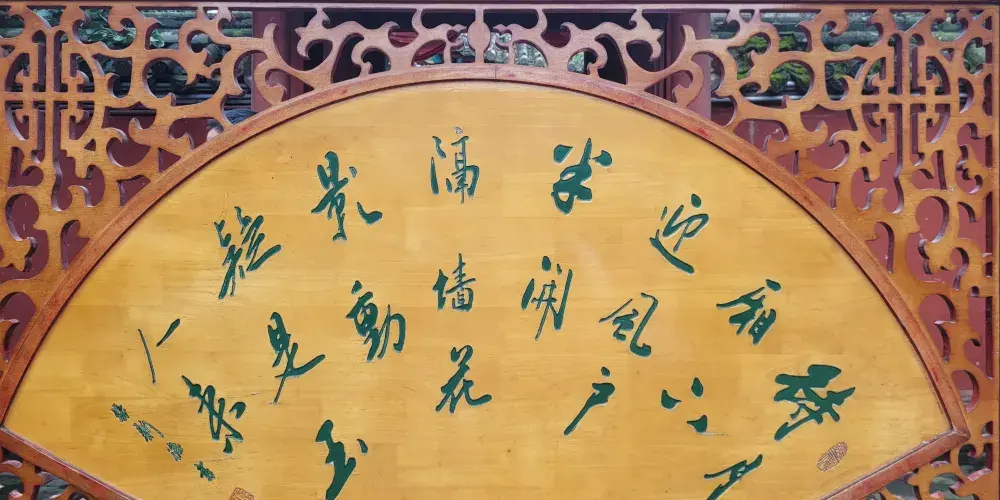 待月
厢下
迎风户
半开
隔墙花
影動
疑是玉
人来